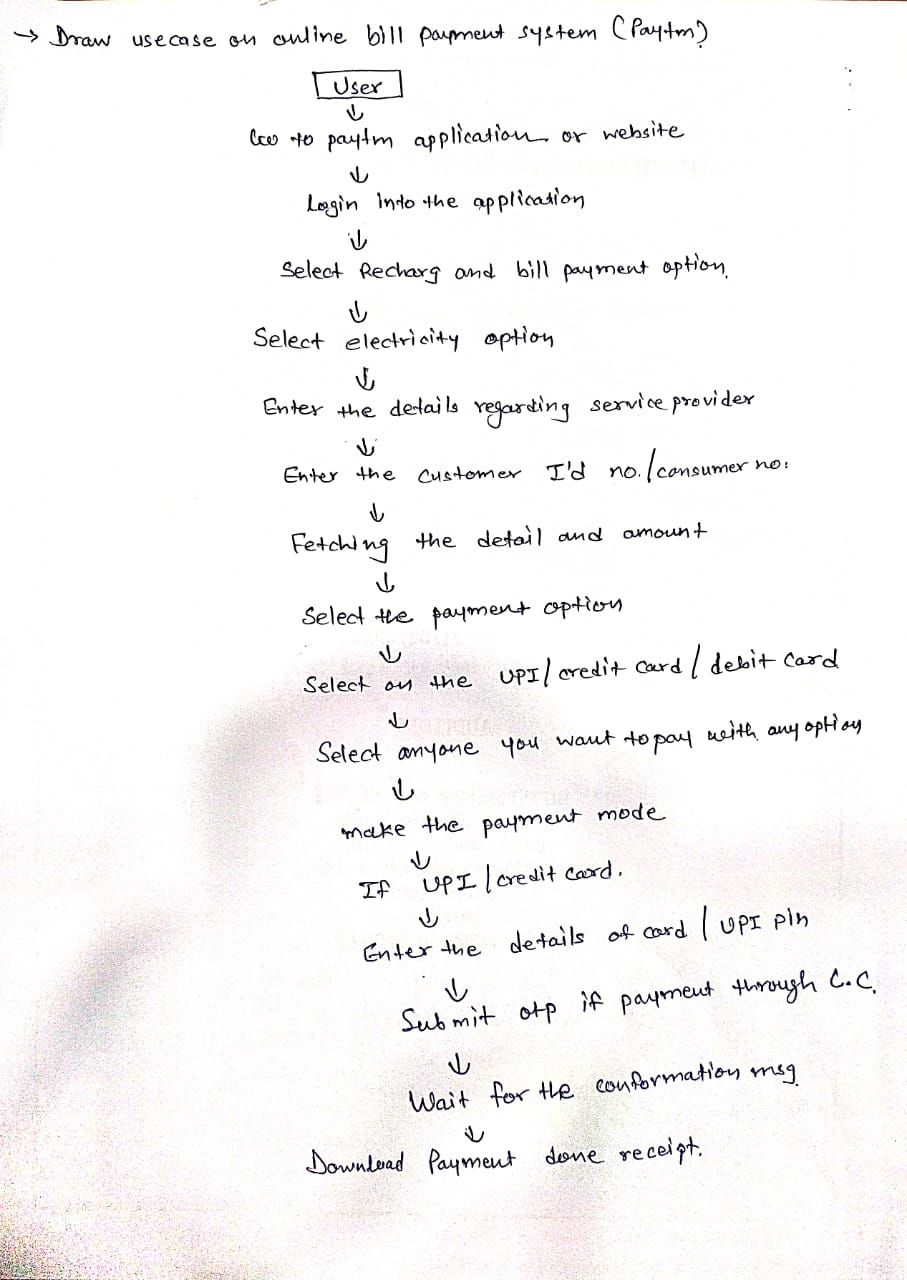 → Draw usecase on online bill payment system (Paytm)
User
↓
Goo to paytm application or website
↓
Login Into the application
↓
Select Recharg and bill payment option.
↓
Select electricity option
↓
Enter the details regarding service provider
↓
Enter the customer I'd no./consumer no:
↓
Fetching the detail and amount
↓
Select the payment option
↓
Select on the UPI/credit card/debit card
↓
Select anyone you want to pay with any option
↓
make the payment mode
↓
If UPI/credit card.
↓
Enter the details of card/UPI pin
↓
Submit otp if payment through C.C.
↓
Wait for the conformation msg
↓
Download Payment done receipt.